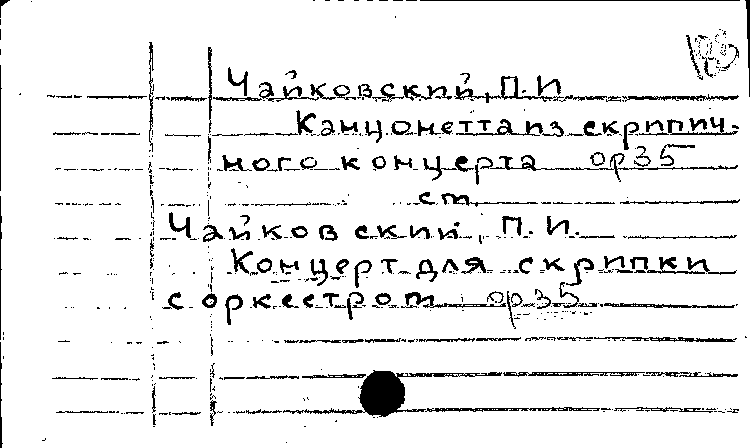 Чайковский, П.И
Канцонетта из скрипич-
ного концерта ор35
см.
Чайковский, П.И.
Концерт для скрипки
с оркестром ор35